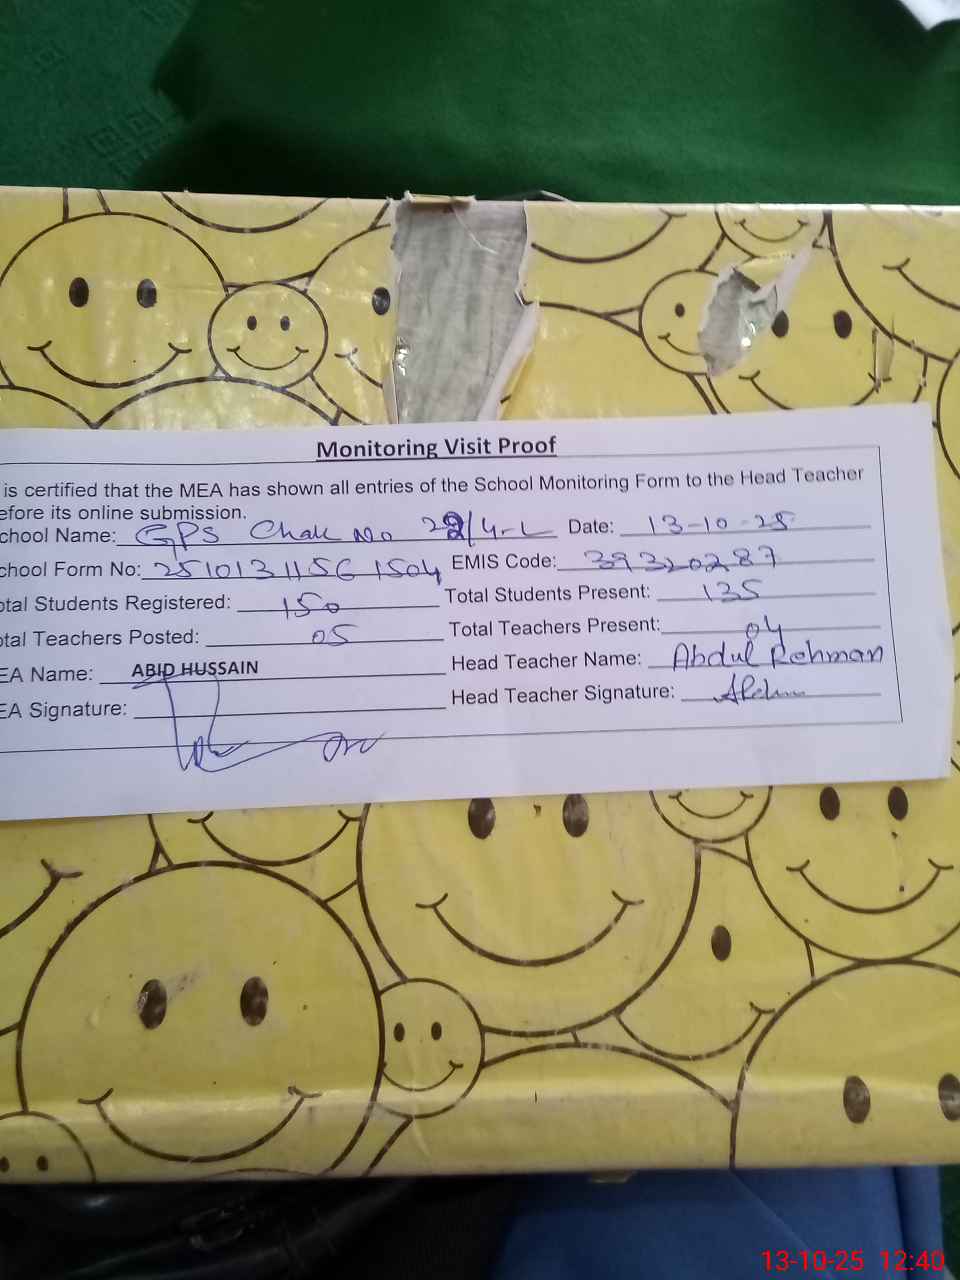 Monitoring Visit Proof
is certified that the MEA has shown all entries of the School Monitoring Form to the Head Teacher
efore its online submission.
chool Name: GPS Chak No 22/4-L Date: 13-10-25
chool Form No: 2510131156 1504 EMIS Code: 39320287
otal Students Registered: 150 Total Students Present: 135
otal Teachers Posted: 05 Total Teachers Present: 04
EA Name: ABID HUSSAIN Head Teacher Name: Abdul Rehman
EA Signature: Head Teacher Signature:
13-10-25 12:40